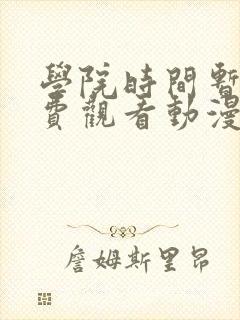 學院時間暫
費觀看動漫
詹姆斯里昂